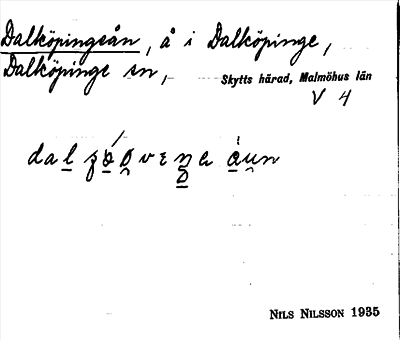 Dalköpingeån, å i Dalköpinge,
Dalköpinge sn,
Skytts härad, Malmöhus län
V 4
NILS NILSSON 1935